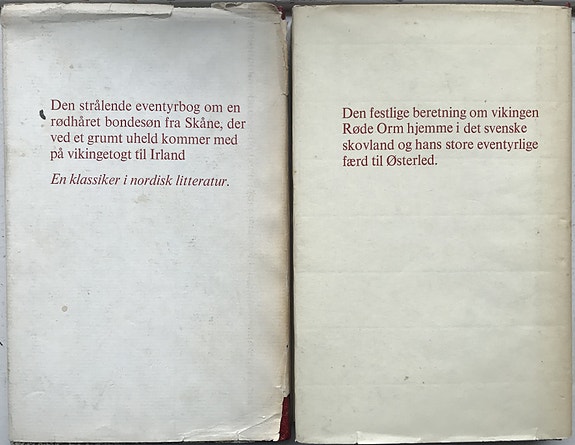 Den strålende eventyrbog om en
rødhåret bondesøn fra Skåne, der
ved et grumt uheld kommer med
på vikingetogt til Irland
En klassiker i nordisk litteratur.
Den festlige beretning om vikingen
Røde Orm hjemme i det svenske
skovland og hans store eventyrlige
færd til Østerled.